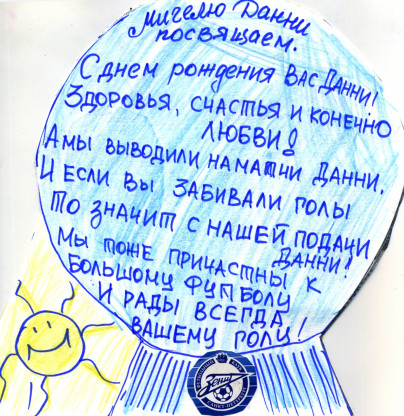 Мигелю Данни
посвящаем.
С днем рождения Вас Данни!
Здоровья, счастья и конечно
любви!
А мы выводили на матчи Данни.
И если вы забивали голы
То значит с нашей подачи
Данни!
Мы тоже причастны к
большому футболу
И рады всегда
вашему голу!
Зенит